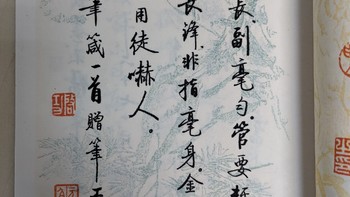 長，副毫勻。管要輕
長鋒，非指毫身。金
用徒嚇人。
筆箴一首贈筆工